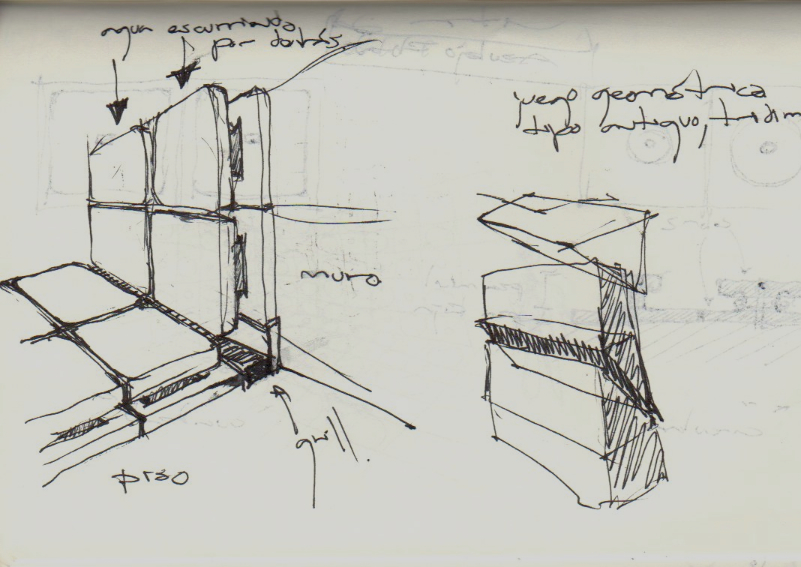 agua escurriendo
por detrás
juego geométrica
tipo antiguo, tridim
muro
grill.
piso